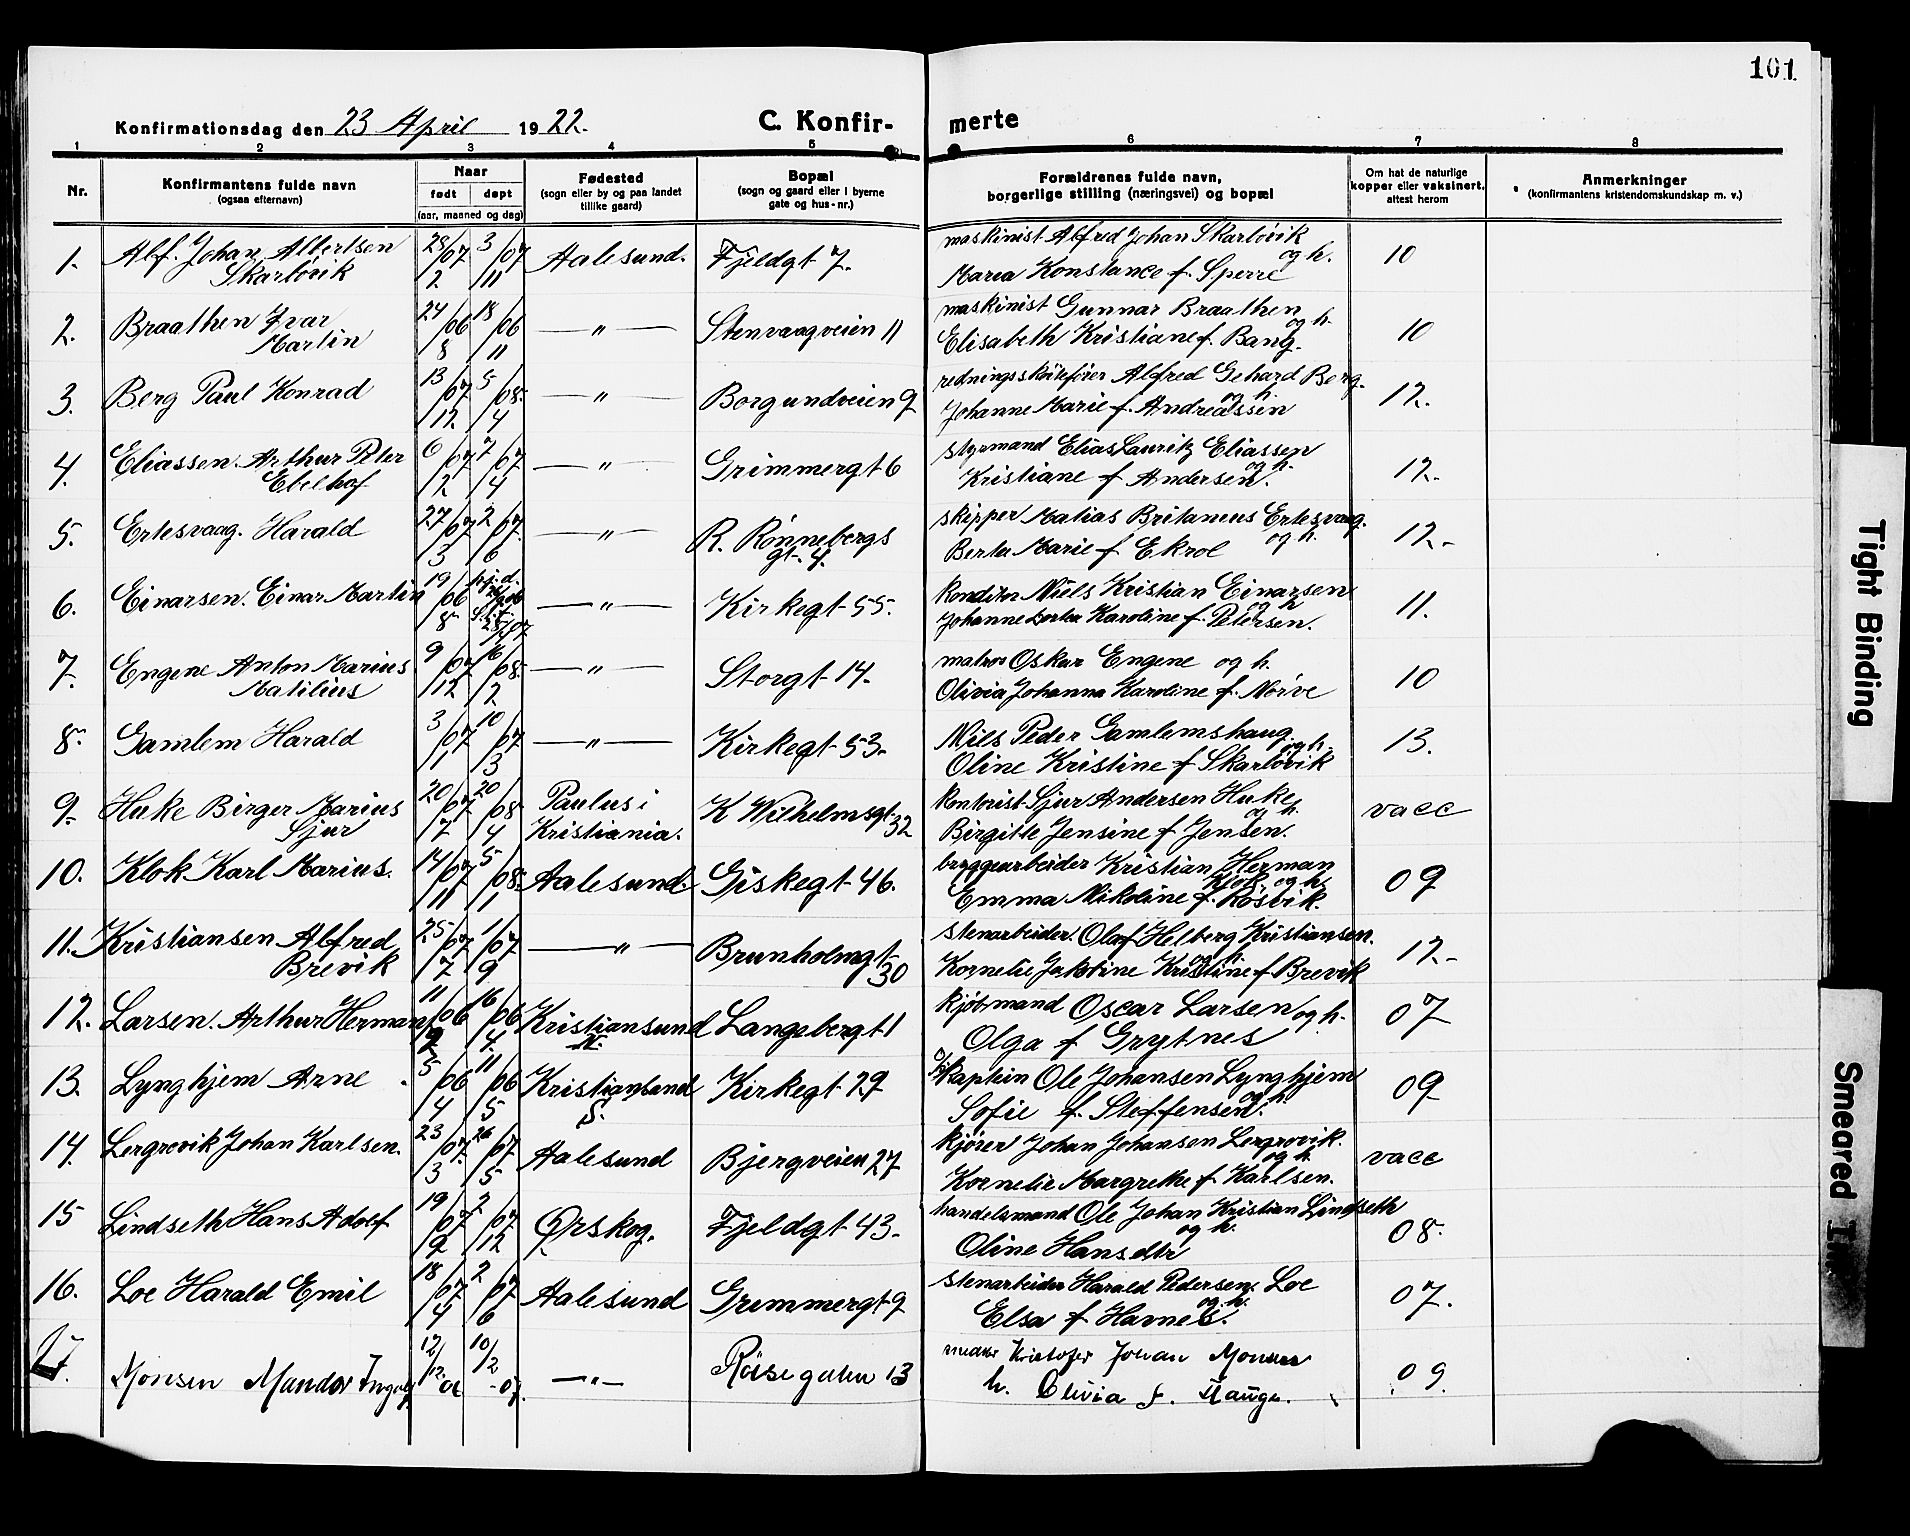 101
Konfirmationsdag den 23 April 1922.
C. Konfirmerte
1 2 3 4 5 6 7 8
Nr.
Konfirmantens fulde navn
(ogsaa efternavn)
Naar
født døpt
(aar, maaned og dag)
Fødested
(sogn eller by og paa landet
tillike gaard)
Bopæl
(sogn og gaard eller i byerne
gate og hus-nr.)
Forældrenes fulde navn,
borgerlige stilling (næringsvei) og bopæl
Om hat de naturlige
kopper eller vaksinert,
attest herom
Anmerkninger
(konfirmantens kristendomskundskap m. v.)
1. Alf. Johan Albertsen Skarbövik 28/2 07 3/11 07 Aalesund. Fjeldgt 7. maskinist Alfred Johan Skarbövik og h. Maria Konstance f. Sperre 10
2. Braathen Ivar Martin 24/8 06 18/11 06 —"— Stenvaagveien 11 maskinist Gunnar Braathen og h. Elisabeth Kristiane f. Bang. 10
3. Berg Paul Konrad 13/12 07 5/4 08. —"— Borgundveien 9 redningsskøitefører Alfred Gehard Berg. og h. Johanne Marie f. Andreassen 12.
4. Eliassen. Arthur Peter 6/2 07 7/4 07 —"— Grimmergt 6 styrmand Elias Lauritz Eliassen og h. Kristiane f Andersen. 12.
5. Ertesvaag. Harald 27/3 07 2/6 07. —"— R. Rønnebergs gt. 4. skipper Matias Ertesvaag. og h. Marie f Ekrol 12.-
6. Einarsen. Einar Martin 19/8 06 hj. d. —"— Kirkegt 55. Konditor Niels Kristian Einarsen og h Johanne Karoline f. Petersen. 11.
7. Engene Anton Marius Matilius 9/12 07 16/2 08. —"— Storgt 14. matros Oskar Engene og h. Olivia Johanna Karoline f. Nörve 10
8. Gamlem Harald 3/1 07 10/3 07 —"— Kirkegt 53. Nils Peder Gamlemshaug. og h. Oline Kristine f Skarbövik 13.
9. Huke Birger Marius Sjur 20/7 07 20/4 08 Paulus i Kristiania. K Wilhelmsgt 32 Kontorist Sjur Andersen Huke og h. Birgitte Jensine f Jensen. vacc
10. Klok Karl Marius. 14/11 07 5/1 08. Aalesund. Giskegt 46. bryggearbeider Kristian Herman Klok. og h. Emma Nikoline f. Rösvik. 09
11. Kristiansen Alfred Brevik 25/7 07 1/9 07 —"— Brunholmgt 30 stenarbeider. Olaf Helberg Kristiansen. og h. Kornelie Jakobine Kristine f Brevik 12.-
12. Larsen. Arthur Herman 11/2 06 16/4 06 Kristiansund N. Langebergt 1 kjöbmand Oscar Larsen og h. Olga f Grytnes 07
13. Lynghjem Arne 5/4 06 11/5 06 Kristiansand S. Kirkegt 29 kaptein Ole Johansen Lynghjem og h. Sofie f. Steffensen. 09
14. Lergrovik Johan Karlsen. 23/3 07. 26/5 07 Aalesund Bjergveien 27 kjörer Johan Johansen Lergrovik. og h. Kornelie Margrethe f Karlsen. vacc
15 Lindseth Hans Adolf 19/9 07 2/12 07 Ørskog. Fjeldgt 43. handelsmand Ole Johan Kristian Lindseth og h. Oline Hansdtr 08.
16. Loe Harald Emil 18/4 07 2/6 07 Aalesund Grimmergt 9 stenarbeider Harald Pedersen Loe og h. Elsa f Havnes. 07.
17. Monsen Mandor Ingolf 12/12 06 10/2 -07. —"— Røisegaten 13 Kristofer Johan Monsen h. Olivia f. Hauge. 09.
Tight Binding
Smeared Ink